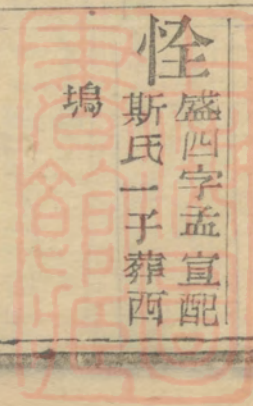 恮
盛四字孟宣配
斯氏一子葬西
塢